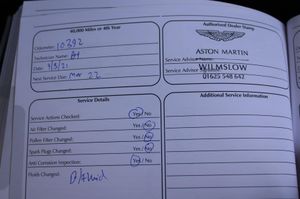 60,000 Miles or 4th Year
Odometer: 10392
Technician Name: AH
Date: 4/5/21
Next Service Due: May 22
Authorised Dealer Stamp
ASTON MARTIN
Service Advisor
WILMSLOW
Service Advisor
01625 548 642
Service Details
Service Actions Checked: Yes/No
Air Filter Changed: Yes/No
Pollen Filter Changed: Yes/No
Spark Plugs Changed: Yes/No
Anti Corrosion Inspection: Yes/No
Fluids Changed: B/Fluid
Additional Service Information